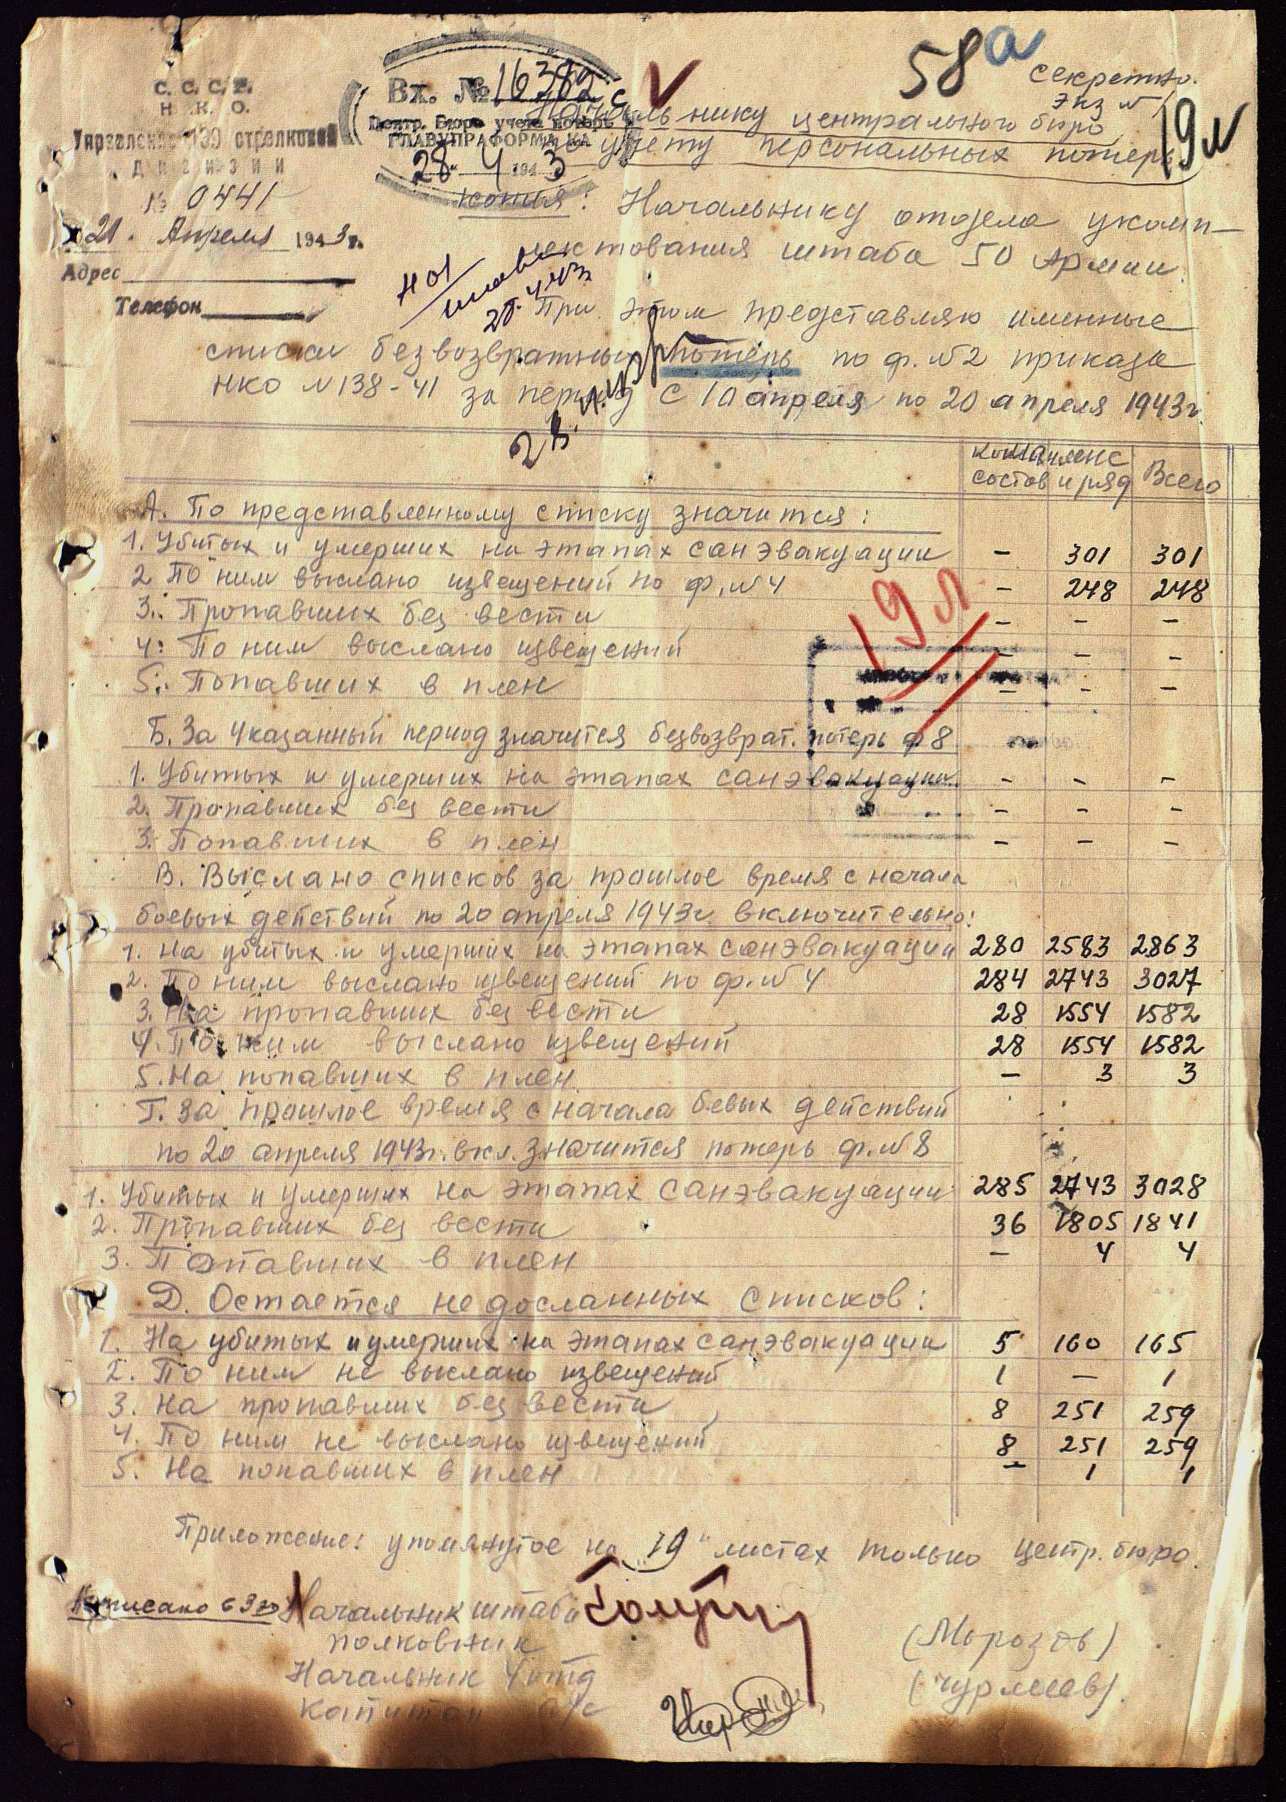 58а
секретно.
экз №1
19 л
С. С. С. Р.
Н. К. О.
Управление 139 стрелковой
дивизии
№ 0441
21. Апреля 1943 г.
Адрес
Телефон
Вх. № 16382с
Центр. Бюро учета потерь
ГЛАВУПРАФОРМА КА
28. 4 1943
Начальнику центрального бюро
по учету персональных потерь
копия: Начальнику отдела укомп-
лектования штаба 50 Армии.
При этом представляю именные
списки безвозвратных потерь по ф. №2 приказа
НКО №138-41 за период с 10 апреля по 20 апреля 1943 г
состав и ряд Всего
А. По представленному списку значится:
1. Убитых и умерших на этапах санэвакуации - 301 301
2 По ним выслано извещений по ф. №4 - 248 248
3. Пропавших без вести - - -
4. По ним выслано извещений - - -
5. Попавших в плен - - -
19 л
Б. За указанный период значится безвозврат. потерь ф 8
1. Убитых и умерших на этапах санэвакуации - - -
2. Пропавших без вести - - -
3. Попавших в плен - - -
В. Выслано списков за прошлое время с начала
боевых действий по 20 апреля 1943 г включительно:
1. На убитых и умерших на этапах санэвакуации 280 2583 2863
2. По ним выслано извещений по ф. №4 284 2743 3027
3. На пропавших без вести 28 1554 1582
4. По ним выслано извещений 28 1554 1582
5. На попавших в плен - 3 3
Г. За прошлое время с начала боевых действий
по 20 апреля 1943 г. вкл. значится потерь ф. №8
1. Убитых и умерших на этапах санэвакуации 285 2743 3028
2. Пропавших без вести 36 1805 1841
3. Попавших в плен - 4 4
Д. Остается недосланных списков:
1. На убитых и умерших на этапах санэвакуации 5 160 165
2. По ним не выслано извещений 1 - 1
3. На пропавших без вести 8 251 259
4. По ним не выслано извещений 8 251 259
5. На попавших в плен - 1 1
Приложение: упомянутое на "19" листах только центр. бюро.
Начальник штаба
полковник (Морозов)
Начальник 4 отд
Капитан а/с (Чурмеев).